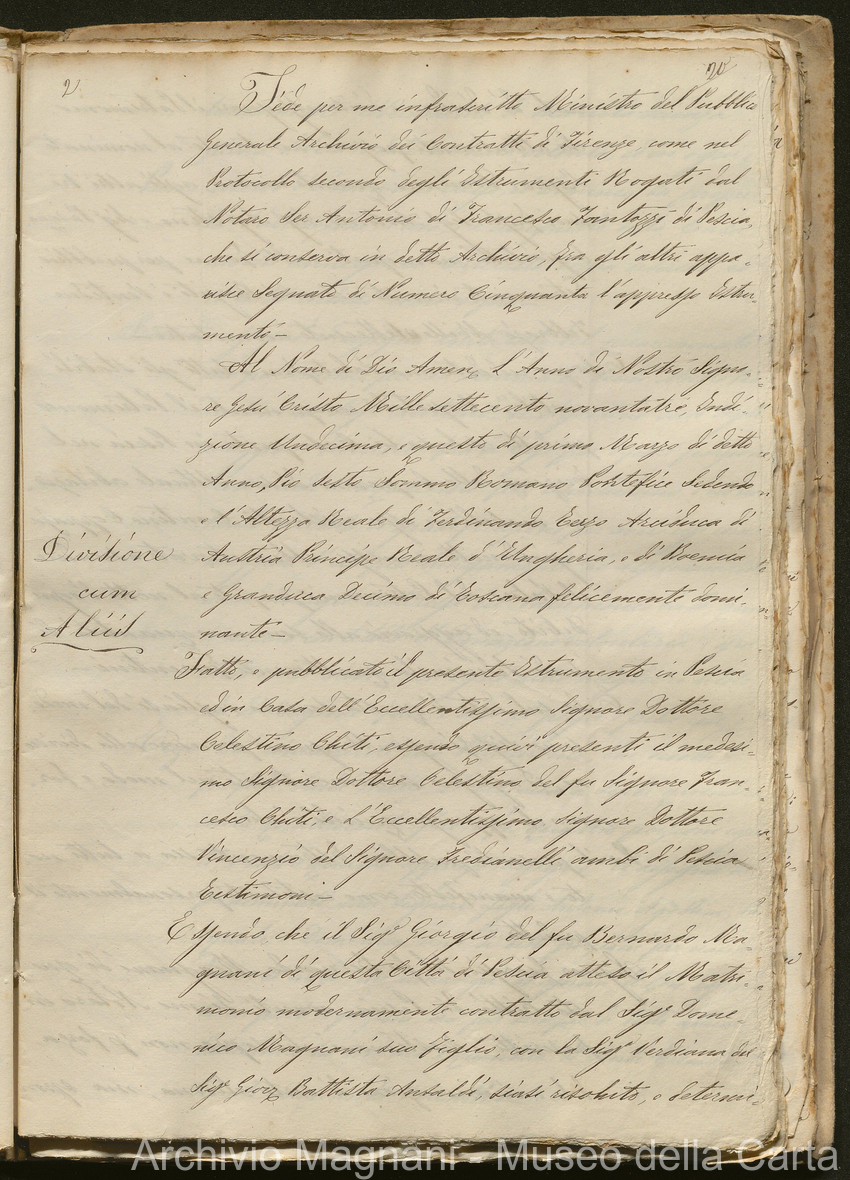 2
20
Fede per me infrascritto Ministro del Pubblico
Generale Archivio dei Contratti di Firenze, come nel
Protocollo secondo degli Estrumenti Rogati dal
Notaro Ser Antonio di Francesco Fantozzi di Pescia,
che si conserva in detto Archivio, fra gli altri appa-
risce Segnato di Numero Cinquanta l'appresso Estru-
mento –
Al Nome di Dio Amen. L'Anno di Nostro Signo-
re Gesù Cristo Mille settecento novantatrè, Indi-
zione Undecima, e questo dì primo Marzo di detto
Anno, Pio Sesto Sommo Romano Pontefice Sedendo
e l'Altezza Reale di Ferdinando Terzo Arciduca di
Austria Principe Reale d'Ungheria, e di Boemia
e Granduca Decimo di Toscana felicemente domi-
nante –
Divisione
cum
Aliis
Fatto, e pubblicato il presente Estrumento in Pescia
ed in Casa dell'Eccellentissimo Signore Dottore
Celestino Chiti, essendo quivi presenti il medesi-
mo Signore Dottore Celestino del fu Signore Fran-
cesco Chiti, e L'Eccellentissimo Signore Dottore
Vincenzio del Signore Fredianelli ambi di Pescia
Testimoni –
Essendo che il Sigr. Giorgio del fu Bernardo Ma-
gnani di questa Città di Pescia atteso il Matri-
monio modernamente contratto dal Sigr. Dome-
nico Magnani suo Figlio, con la Sigra. Verdiana del
Sigr. Giov. Battista Ansaldi, siasi risoluto, e determi-
Archivio Magnani - Museo della Carta